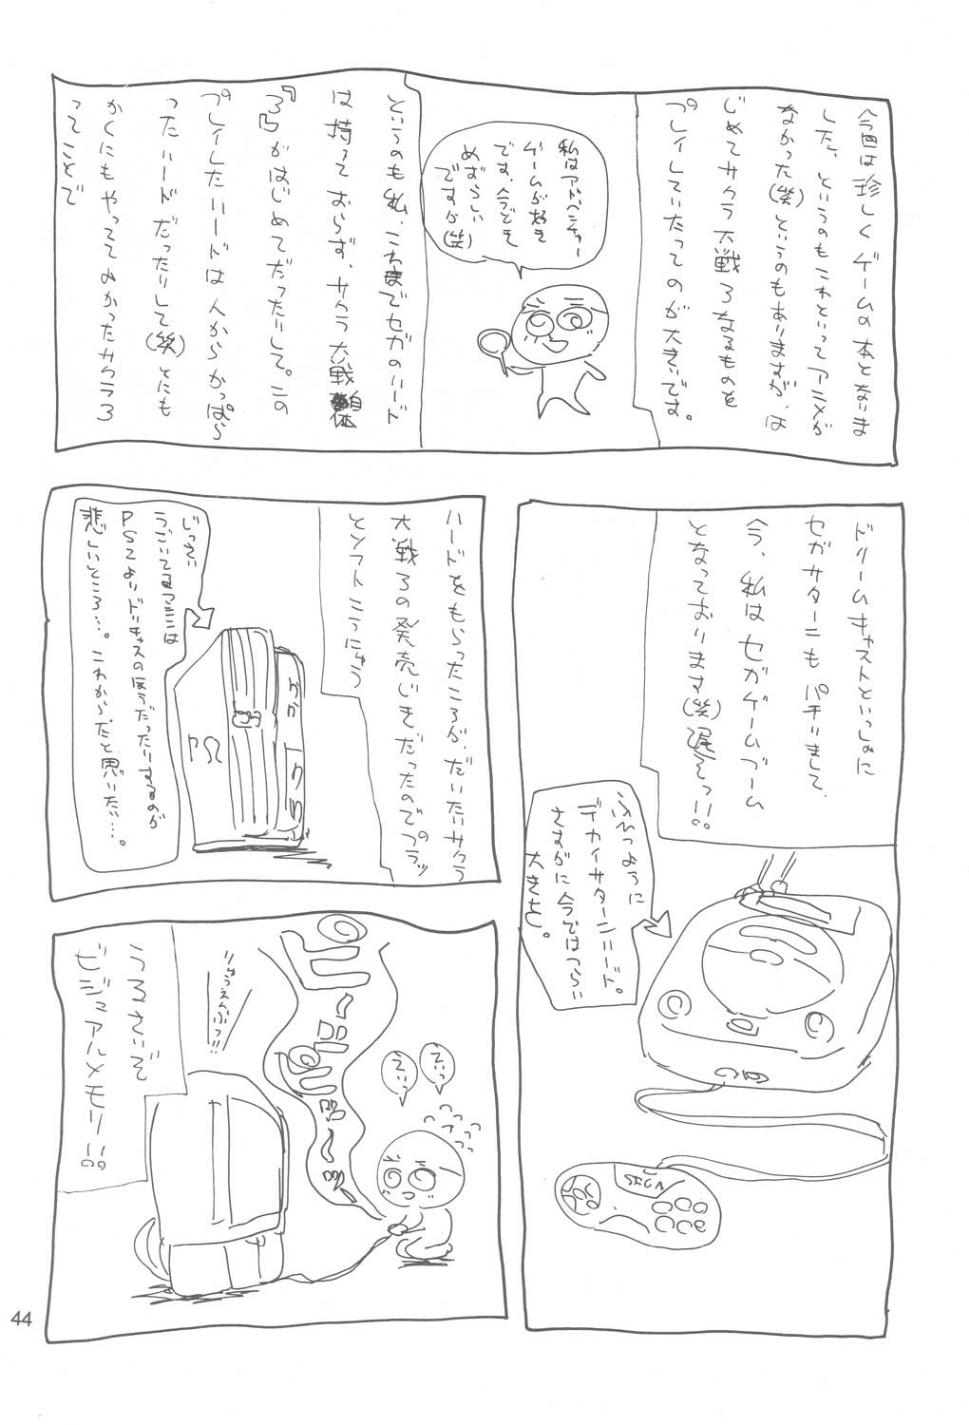 今回は珍しくゲームの本となりま
した、というのもこれといってアニメが
なかった(笑)というのもありますが、は
じめてサクラ大戦3なるものを
プレイしていたってのが大きいです。
私はアドベンチャー
ゲームが好き
です、今どき
めずらしい
ですが(笑)
というのも私、これまでセガのハード
は持っておらず、サクラ大戦自体
『3』がはじめてだったりして。この
プレイしたハードは人からかっぱら
ったハードだったりして(笑)とにも
かくにもやっててよかったサクラ3
ってことで
ドリームキャストといっしょに
セガサターンもパチりまして、
今、私はセガゲームブーム
となっております(笑)遅そっ!!
ふつように
デカイサターンハード。
さすがに今ではつらい
大きさ。
SEGA
ハードをもらったころが、だいたいサクラ
大戦3の発売じきだったのでプラッ
とソフトこうにゅう
じっさい
うごいてるマシンは
PS2よりドリキャスのほうだったりするのが
悲しいところ…。これからだと思いたい…。
PS2
うるさいぞ
ビジュアルメモリー!!
ピーーーピーーーッ
えいっ
えいっ
44